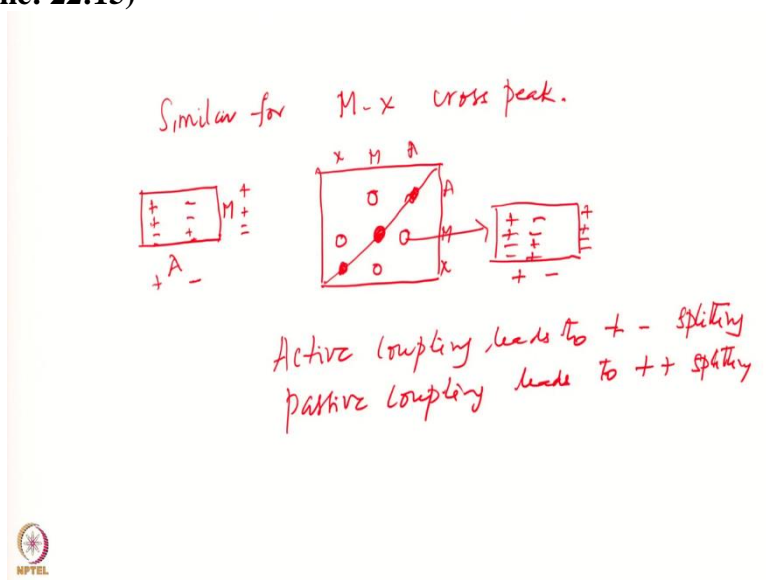 Similar for M-X cross peak.
X M A
A
M
X
+ -
+ -
- +
M
+
+
-
+ A -
+ -
+ -
- +
+
+
-
+ -
Active coupling leads to + - splitting
passive coupling leads to + + splitting
NPTEL